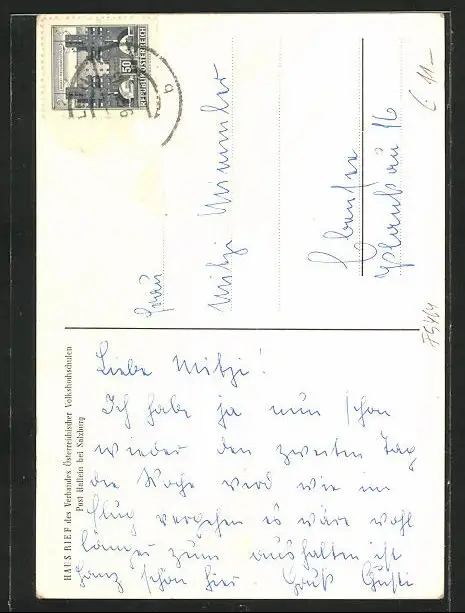 HAUS RIEF des Verbandes Österreichischer Volkshochschulen
Post Hallein bei Salzburg
Liebe Mitzi!
Ich habe ja nun schon
wieder den zweiten Tag
die Woche wird wie im
Flug vergehen es wäre wohl
länger zum aushalten ist
ganz schön hier Gruß Gusti
50
REPUBLIK ÖSTERREICH
Frau
Mitzi
Ebensee
16
€ 11-